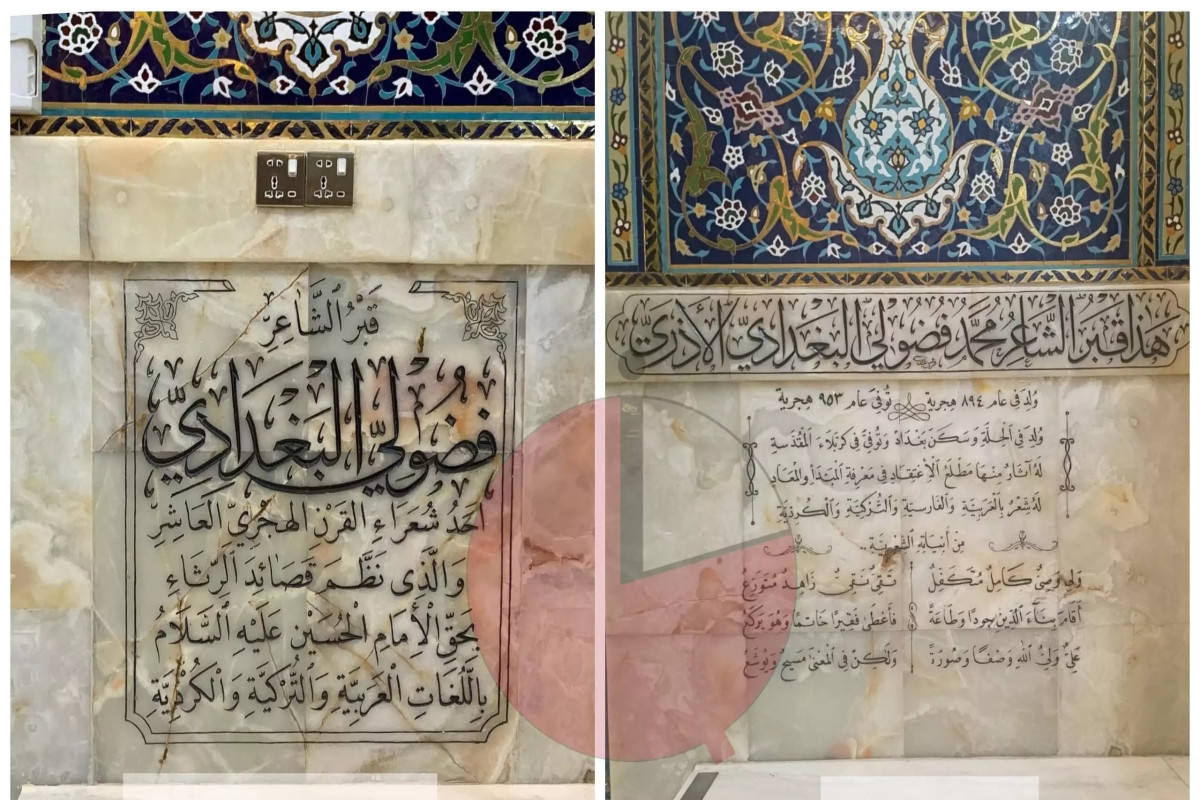 قَبْرُ ٱلشَّاعِرِ
فُضُولِيّ البَغْدَادِيّ
أَحَدُ شُعَرَاءِ القَرْنِ الهِجْرِيِّ العَاشِرِ
وَالَّذِى نَظَّمَ قَصَائِدَ الرِّثَاءِ
بِحَقِّ الْأِمَامِ الْحُسَيْنِ عَلَيْهِ السَّلَامُ
بِاللُّغَاتِ الْعَرَبِيَّةِ وَالتُّرْكِيَّةِ وَالْكُرْدِيَّةِ
هٰذَا قَبْرُ الشَّاعِرِ مُحَمَّد فُضُولِيّ البَغْدَادِيّ الأَذَرِيّ
وُلِدَ فِى عَام ٨٩٤ هِجرية تُوُفِّىَ عَام ٩٥٣ هِجرية
وُلِدَ فِى الْحِلَّةِ وَسَكَنَ بَغْدَادَ وَتُوُفِّىَ فِى كَرْبَلَاءَ الْمُقَدَّسَةِ
لَهُ آثَارٌ مِنْهَا مَطْلَعُ الْأِعْتِقَادِ فِى مَعْرِفَةِ الْمَبْدَأ وَالْمَعَادِ
لَهُ شِعْرٌ بِالْعَرَبِيَّةِ وَالْفَارِسِيَّةِ وَالتُّرْكِيَّةِ وَالْكُرْدِيَّةِ
مِنْ الشِّعْرِيَّةِ ..
وَلِىٌّ وَصِىٌّ كَامِلٌ مُتَكَفِّلٌ تَقِىٌّ نَقِىٌّ زَاهِدٌ مُتَوَرِّعٌ
أَقَامَ بِنَاءَ الدِّينِ جُودًا وَطَاعَةً فَأَعْطىٰ فَقِيرًا خَاتَمًا وَهْوَ يَرْكَعُ
عَلِىٌّ وَلِىُّ اللهِ وَصْفًا وَصُورَةً وَلٰكِنْ فِى الْمَعْنىٰ مَسِيحٌ وَيُوشَعُ